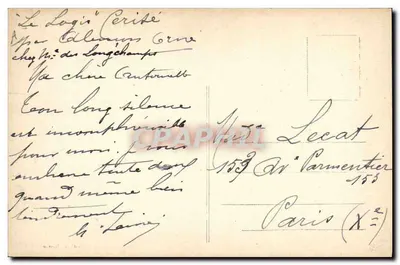 "Le Logis" Cerisé
par Alençon Orne
chez Mr. des Longchamps
Ma chère Antoinette
Ton long silence
est incompréhensible
pour moi. Je vous
embrasse toute deux
quand même bien
tendrement
Melle Lecat
153 Av Parmentier
153
Paris (Xe)